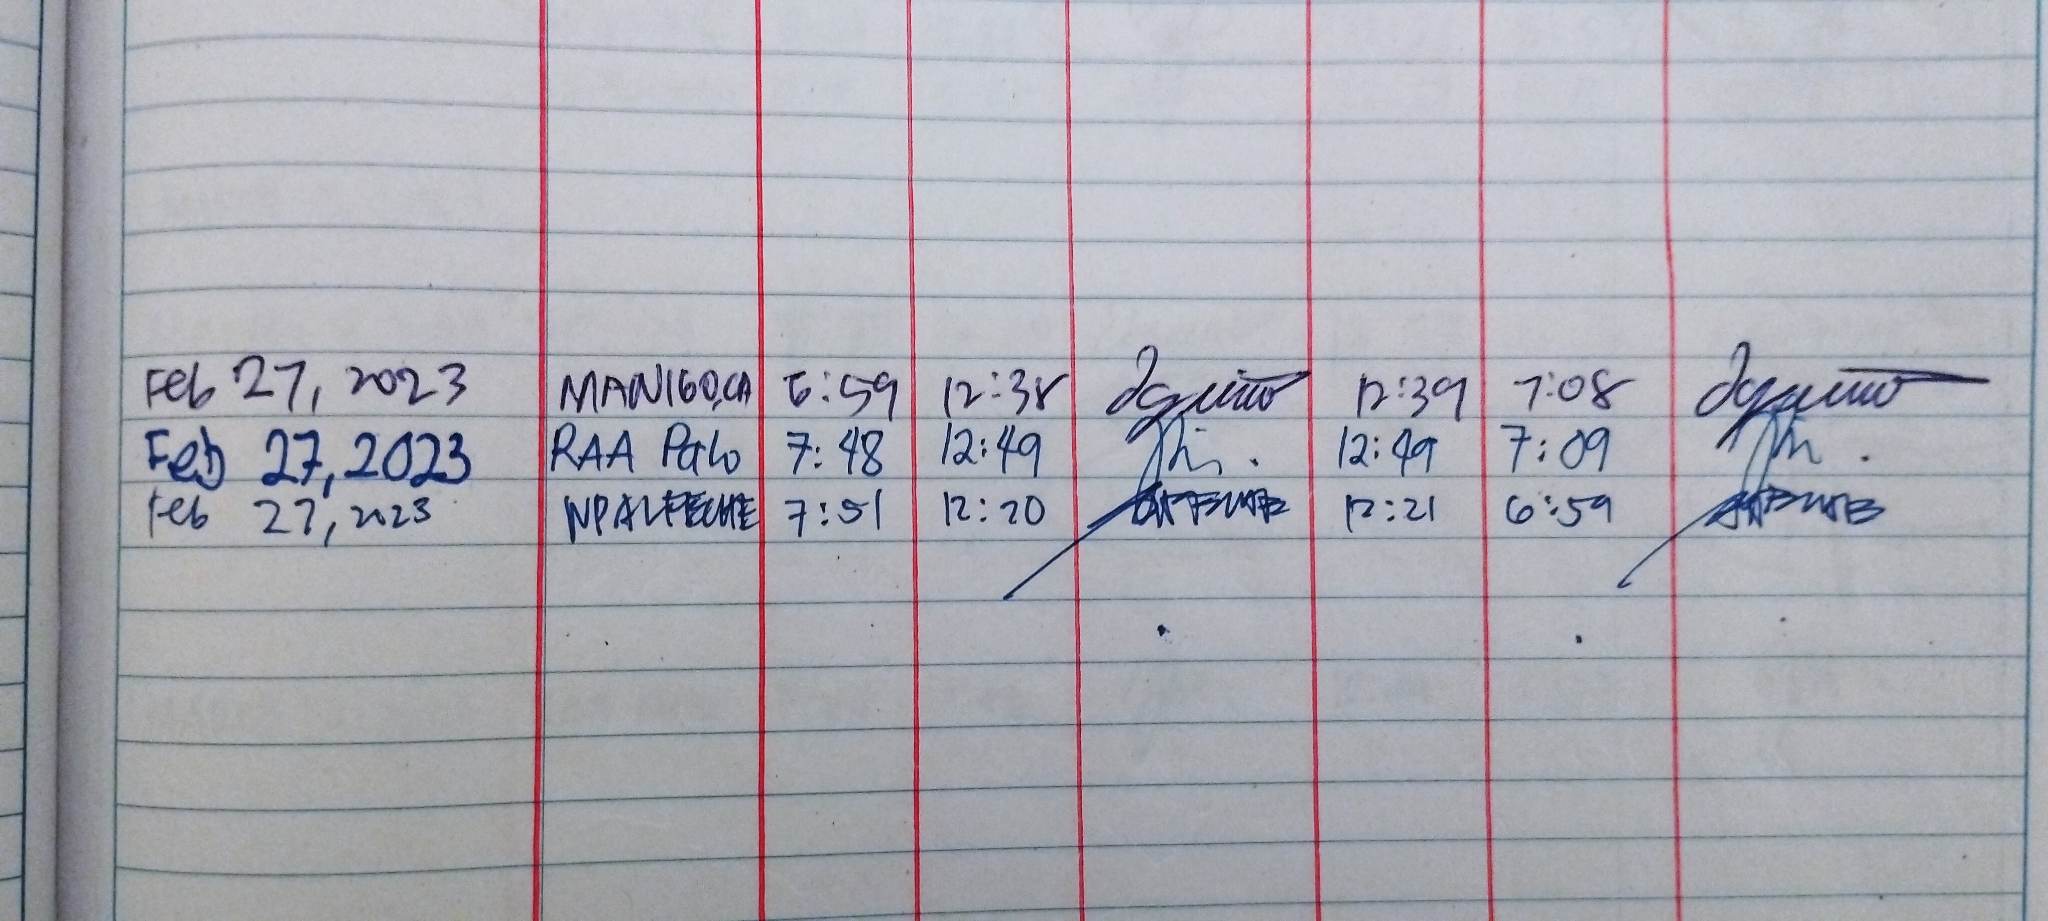 Feb 27, 2023 MANIGO,CA 6:59 12:38 12:39 7:08
Feb 27, 2023 RAA Palo 7:48 12:49 12:49 7:09
Feb 27, 2023 7:51 12:20 12:21 6:59